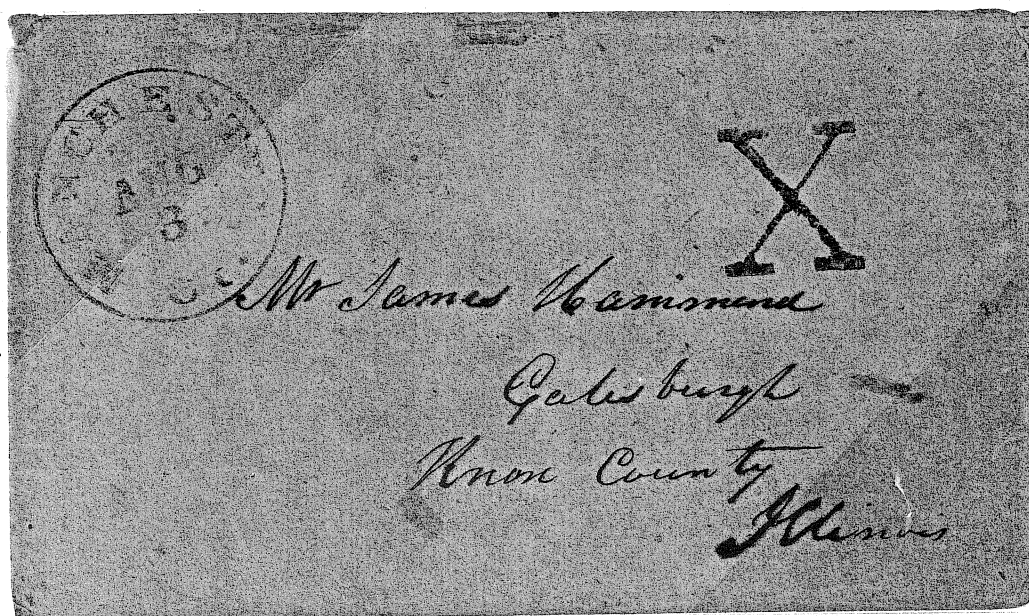 AUG
3
X
Mr James Hammond
Galesburgh
Knox County
Illinois